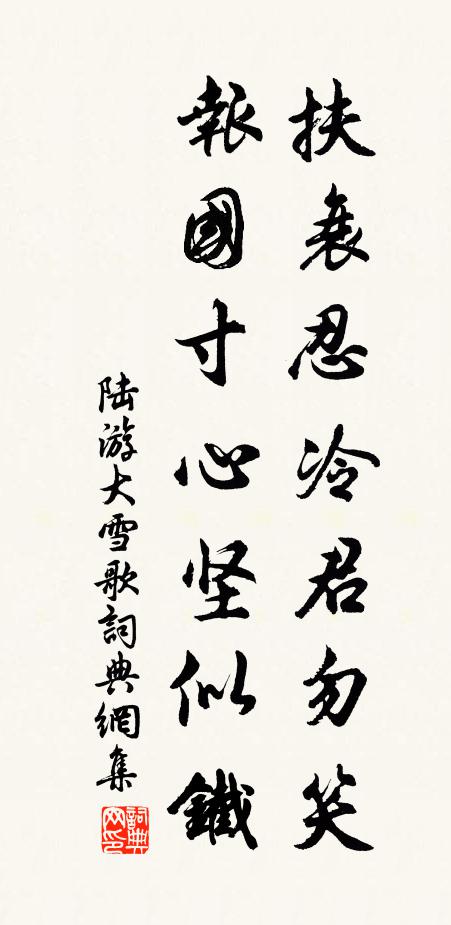 扶衰忍冷君勿笑
報國寸心坚似鐵
陆游大雪歌詞典網集
詞典网印